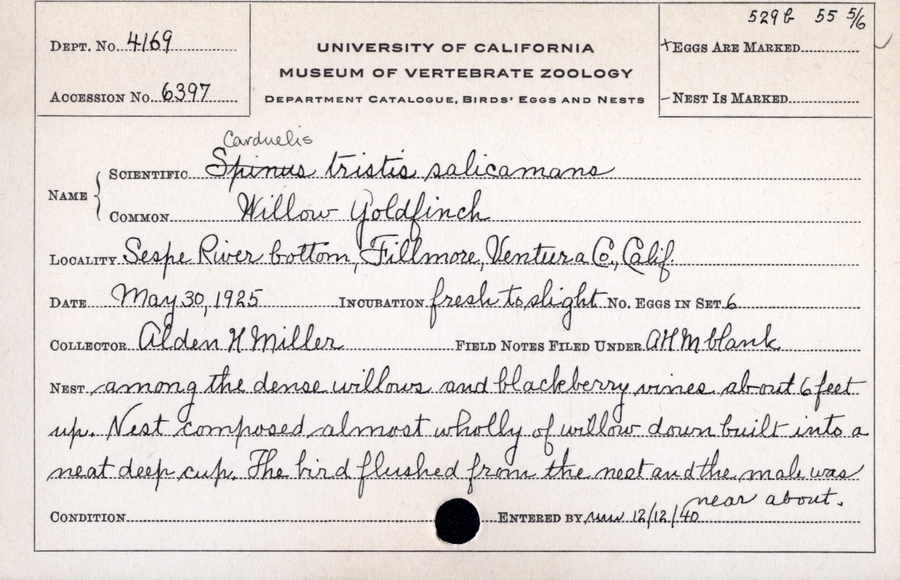 529b 55 5/6
DEPT. No. 4169
UNIVERSITY OF CALIFORNIA
+EGGS ARE MARKED
MUSEUM OF VERTEBRATE ZOOLOGY
ACCESSION No. 6397
DEPARTMENT CATALOGUE, BIRDS' EGGS AND NESTS
-NEST IS MARKED
Carduelis
NAME { SCIENTIFIC Spinus tristis salicamans
COMMON Willow Goldfinch
LOCALITY Sespe River bottom, Fillmore, Ventura Co., Calif.
DATE May 30, 1925 INCUBATION fresh to slight No. EGGS IN SET 6
COLLECTOR Alden H Miller FIELD NOTES FILED UNDER AHM blank
NEST among the dense willows and blackberry vines about 6 feet
up. Nest composed almost wholly of willow down built into a
neat deep cup. The bird flushed from the nest and the male was
near about.
CONDITION ENTERED BY 12/12/40